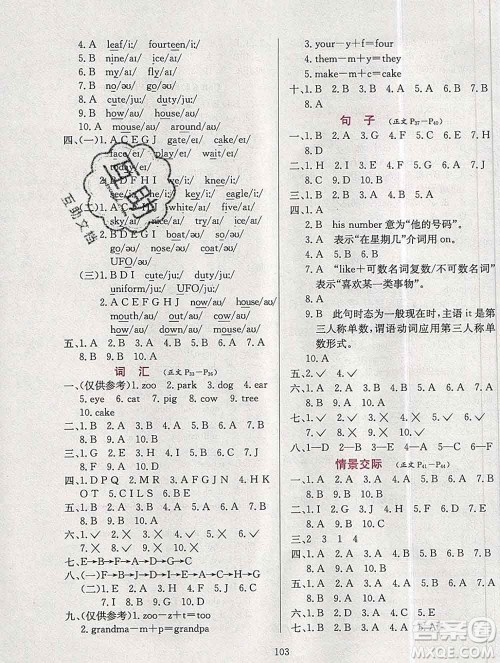 4. A leaf/iː/ fourteen/iː/
5. B nine/aɪ/ ice/aɪ/
6. B my/aɪ/ fly/aɪ/
7. B go/əʊ/ no/əʊ/
8. A cute/juː/ due/juː/
9. B know/əʊ/ low/əʊ/
10. A mouse/aʊ/ around/aʊ/
四、(一)1. A C E G J gate/eɪ/ cake/eɪ/
face/eɪ/ play/eɪ/ wait/eɪ/
2. B D F H I we/iː/ see/iː/
eat/iː/ key/iː/
nose/əʊ/
boat/əʊ/ know/əʊ/
UFO/əʊ/
(三)1. B D I cute/juː/ due/juː/
uniform/juː/ UFO/juː/
2. A C E F G H J house/aʊ/ how/aʊ/
mouth/aʊ/ out/aʊ/ cow/aʊ/
now/aʊ/ around/aʊ/
五、1. A 2. A 3. B 4. B 5. A
词 汇 (正文 P33－P36)
一、(仅供参考)1. zoo 2. park 3. dog 4. ear
5. eye 6. cat 7. pig 8. cow 9. tree
10. cake
三、1. B 2. A 3. B 4. B 5. B 6. B 7. A
8. B 9. A 10. B
四、1. D O 2. P Q 3. M R 4. A G 5. H K
O T 5. C I L S 6. B F
五、1. A 2. A 3. A 4. B 5. A 6. A 7. B
8. B 9. B 10. A
六、1. √ 2. × 3. × 4. × 5. √ 6. √
7. × 8. × 9. √ 10. √
七、E→B→F→A→D→G→C
八、(一)1. C 2. D 3. A 4. E 5. B
(二)1. A 2. B 3. A 4. A 5. B 6. B
7. B 8. B 9. A 10. B
九、(仅供参考)1. zoo－z＋t＝too
2. grandma－m＋p＝grandpa
3. your－y＋f＝four
4. them－m＋y＝they
5. make－m＋c＝cake
十、1. B 2. B 3. A 4. B 5. B 6. A 7. B
8. A
句 子 (正文 P37－P40)
一、1. B 2. A 3. G 4. F 5. H 6. I 7. C
8. E 9. D 10. J
三、1. B 2. B 3. A 4. B 5. A 6. A 7. B
8. A 9. B 10. B
四、1. A
2. B his number 意为“他的号码”。
3. A 表示“在星期几”介词用 on。
7. A “like＋可数名词复数/不可数名词”
表示“喜欢某一类事物”。
8. B
9. A 此句时态为一般现在时，主语 it 是第
三人称单数，谓语动词应用第三人称单
数形式。
10. A
五、1. √ 2. √ 3. × 4. × 5. √
六、1. B 2. A 3. B 4. B 5. A 6. A 7. B
8. B 9. A 10. A
七、1. √ 2. √ 3. √ 4. √ 5. √
八、1—D 2—C 3—B 4—A 5—E
情景交际 (正文 P41－P44)
一、1. A 2. A 3. A 4. B 5. B 6. A 7. A
8. A 9. B 10. A
三、2 3 1 4
四、1. B 2. A 3. A 4. B 5. A 6. A 7. B
8. A 9. A 10. A
五、1. B 2. A 3. A 4. B 5. A 6. A 7. B
8. B 9. A 10. A
六、1. √ 2. √ 3. × 4. × 5. √ 6. √
七、1. A 2. B 3. A 4. B 5. A
103
互助
互助文档